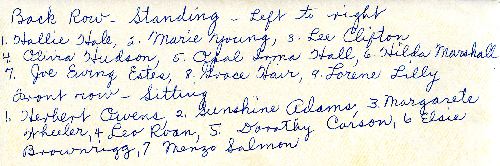 Back Row - Standing - Left to right
1. Hallie Hale, 2. Marie Young, 3. Lee Clifton
4 Elvira Hudson, 5. Opal Irma Hall, 6 Hilda Marshall
7. Joe Ewing Estes, 8. Grace Hair, 9. Lorene Lilly
Front row - Sitting
1. Herbert Owens, 2. Sunshine Adams, 3. Margarete
Wheeler, 4 Leo Roan, 5. Dorothy Carson, 6 Elsie
Brownrigg, 7 Menzo Salmon